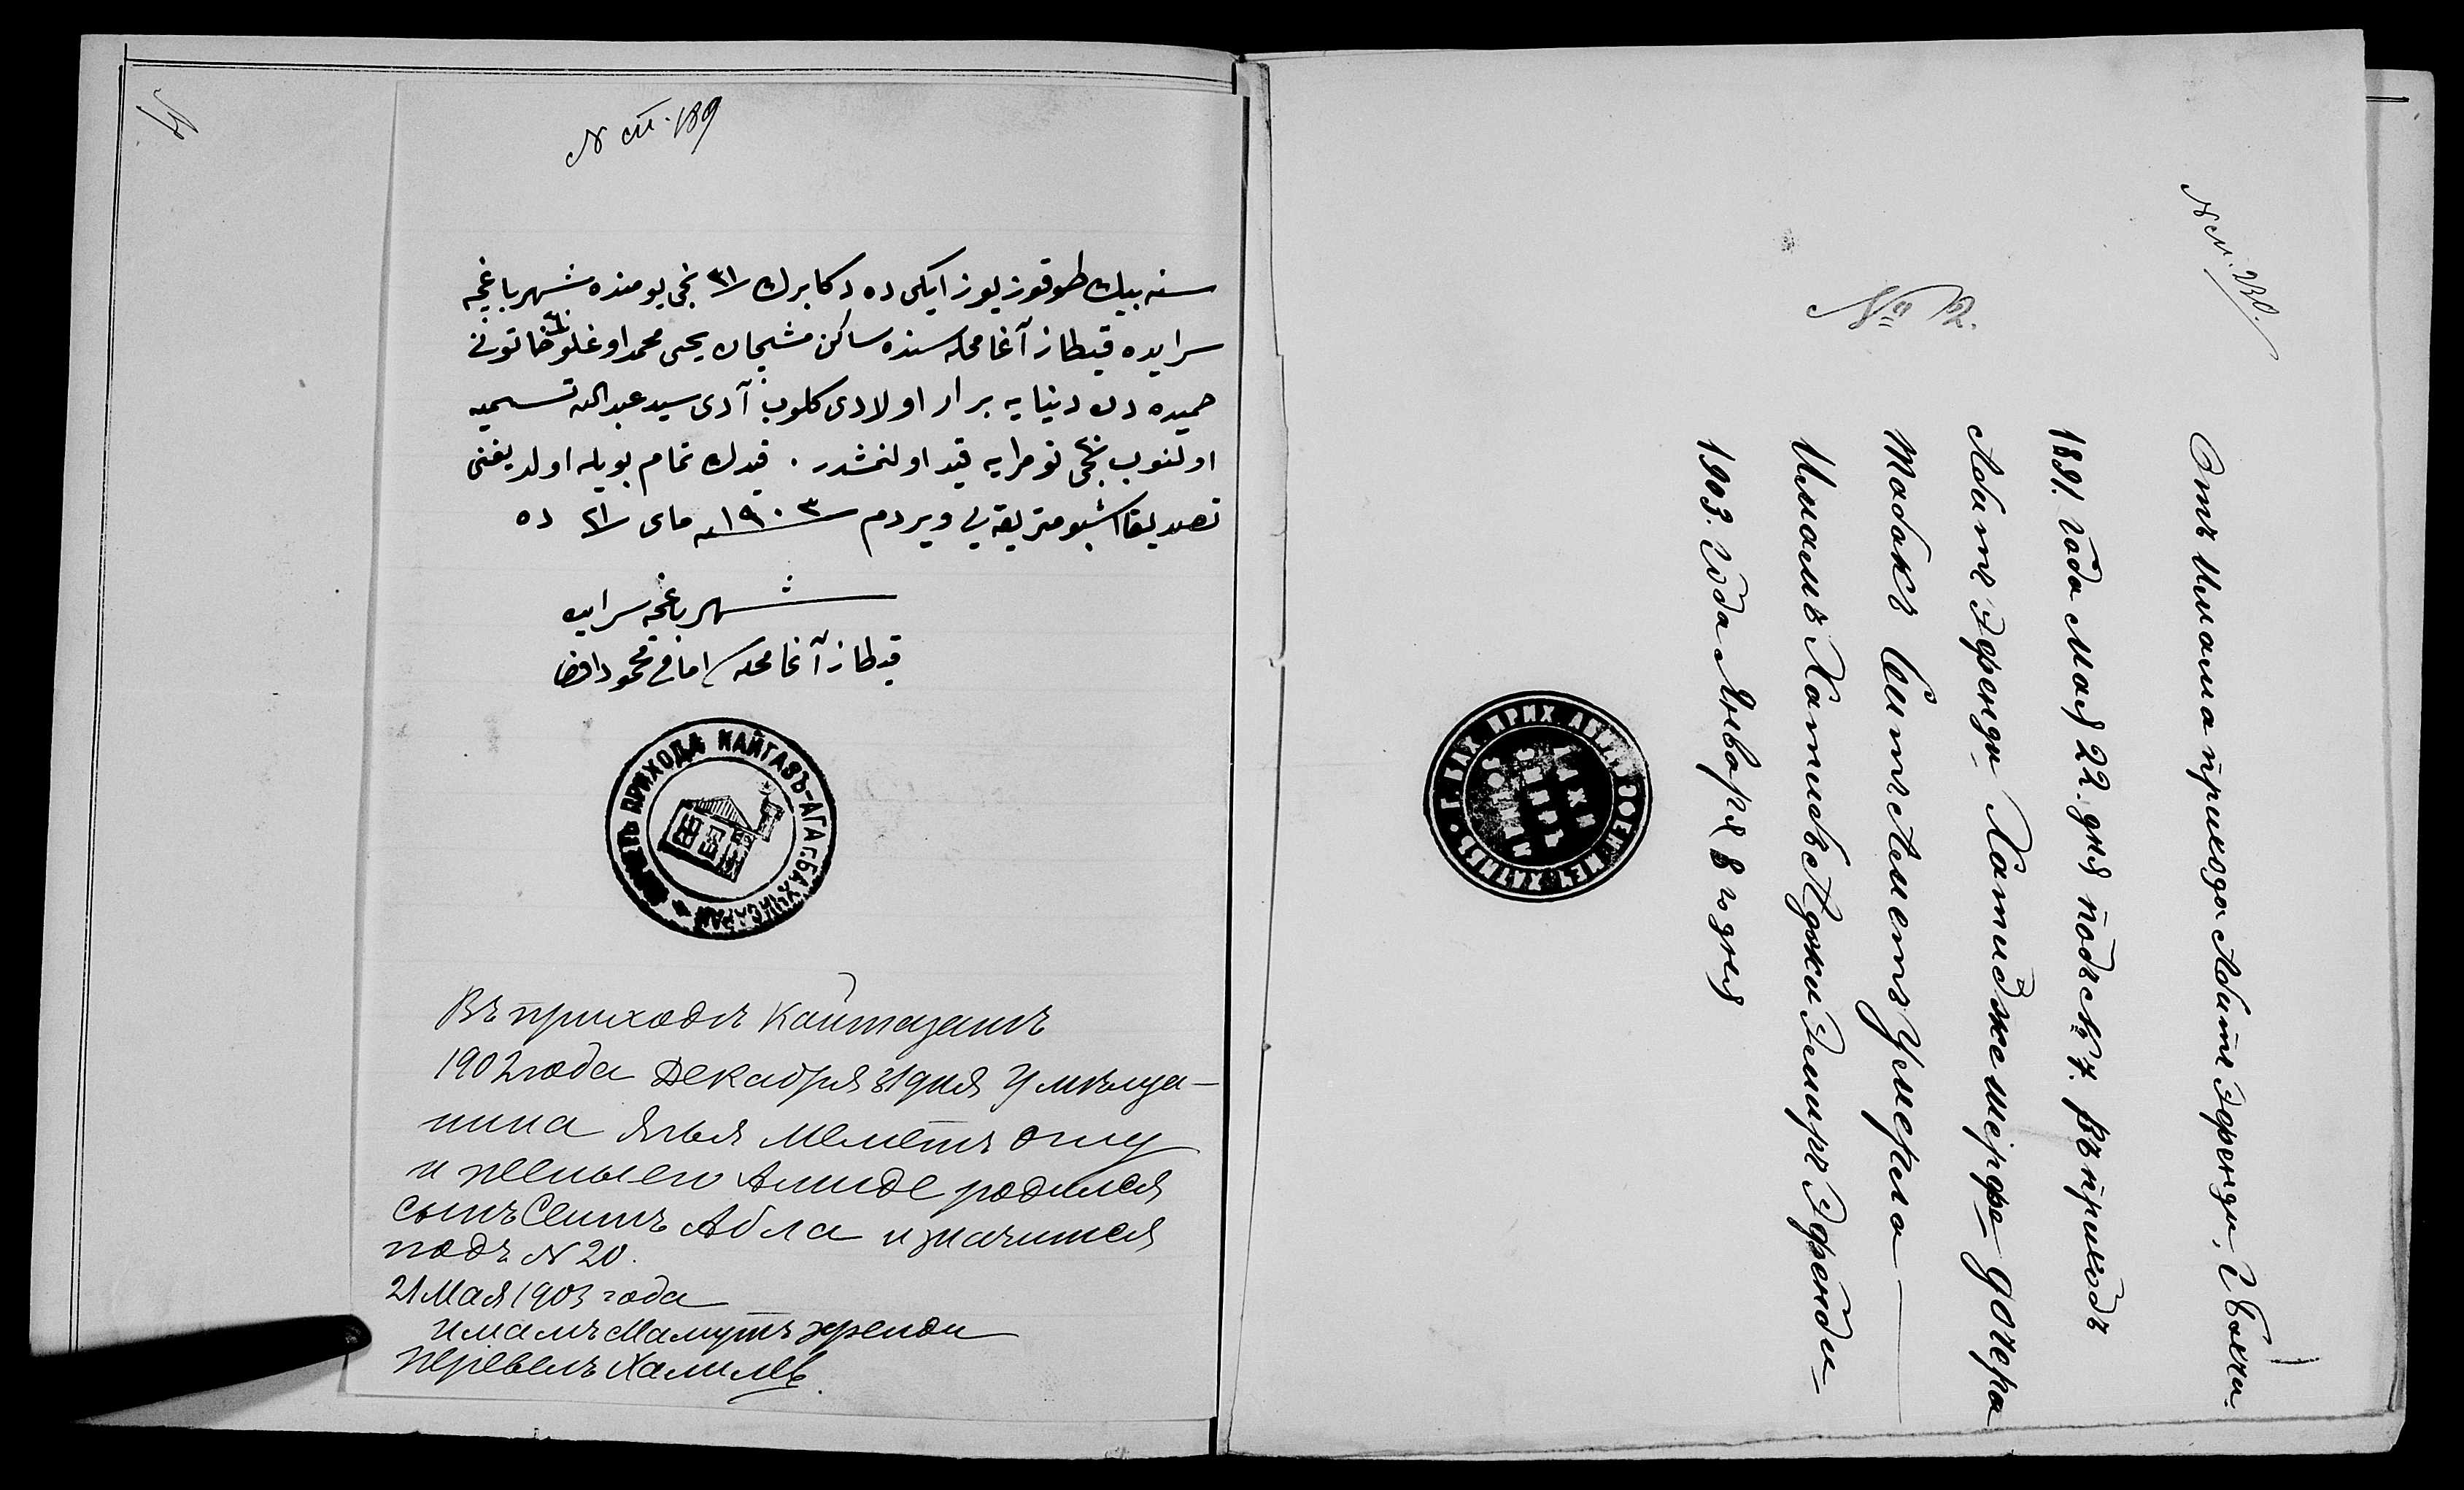 N ст. 189
سنه بيڭ طوقوز يوز ايكى ده دكابرڭ ٣١ نجى يومنده شهر باغچه
سرايده قيطاز آغا محله سنده ساكن مشچان يحيى محمد اوغلو خاتونى
حميده دن دنيايه برار اولادى كلوب آدى سيد عبدالله تسميه
اولنوب ٢٠ نجى نومرايه قيد اولنمشدر . قيدڭ تمام بويله اولديغنى
تصديقا اشبو متريقه يى ويردم ١٩٠٣ سنه ماى ٢١ ده
شهر باغچه سرايده
قيطاز آغا محله امامى محمود افندى
ПРИХОДА КАЙТАЗЪ-АГА Г. БАХЧИСАРАЯ
Въ приходѣ Кайтазагъ
1902 года Декабря 31 дня У мѣща-
нина Ягья Меметъ оглу
и жены его Амиде родился
сынъ Сеитъ Абла и значится
подъ N 20.
21 Мая 1903 года
имамъ Мамутъ эфенди
перевелъ Халилев
N м. 230.
№ 12.
Отъ Имама прихода Абитъ Эфенди, г Бахчи.
1891. года Мая 22. дня подъ № 7. Въ приходѣ
Абитъ Эфенди Хатидже шерфе дочера
Табакъ Сеитъ Аметъ Умерла
Имамъ Хатипъ Аджи Эмиръ Эфенди
1903. года Января 8 го дня
Г. БАХ. ПРИХ. АБИТ ЭФЕН.